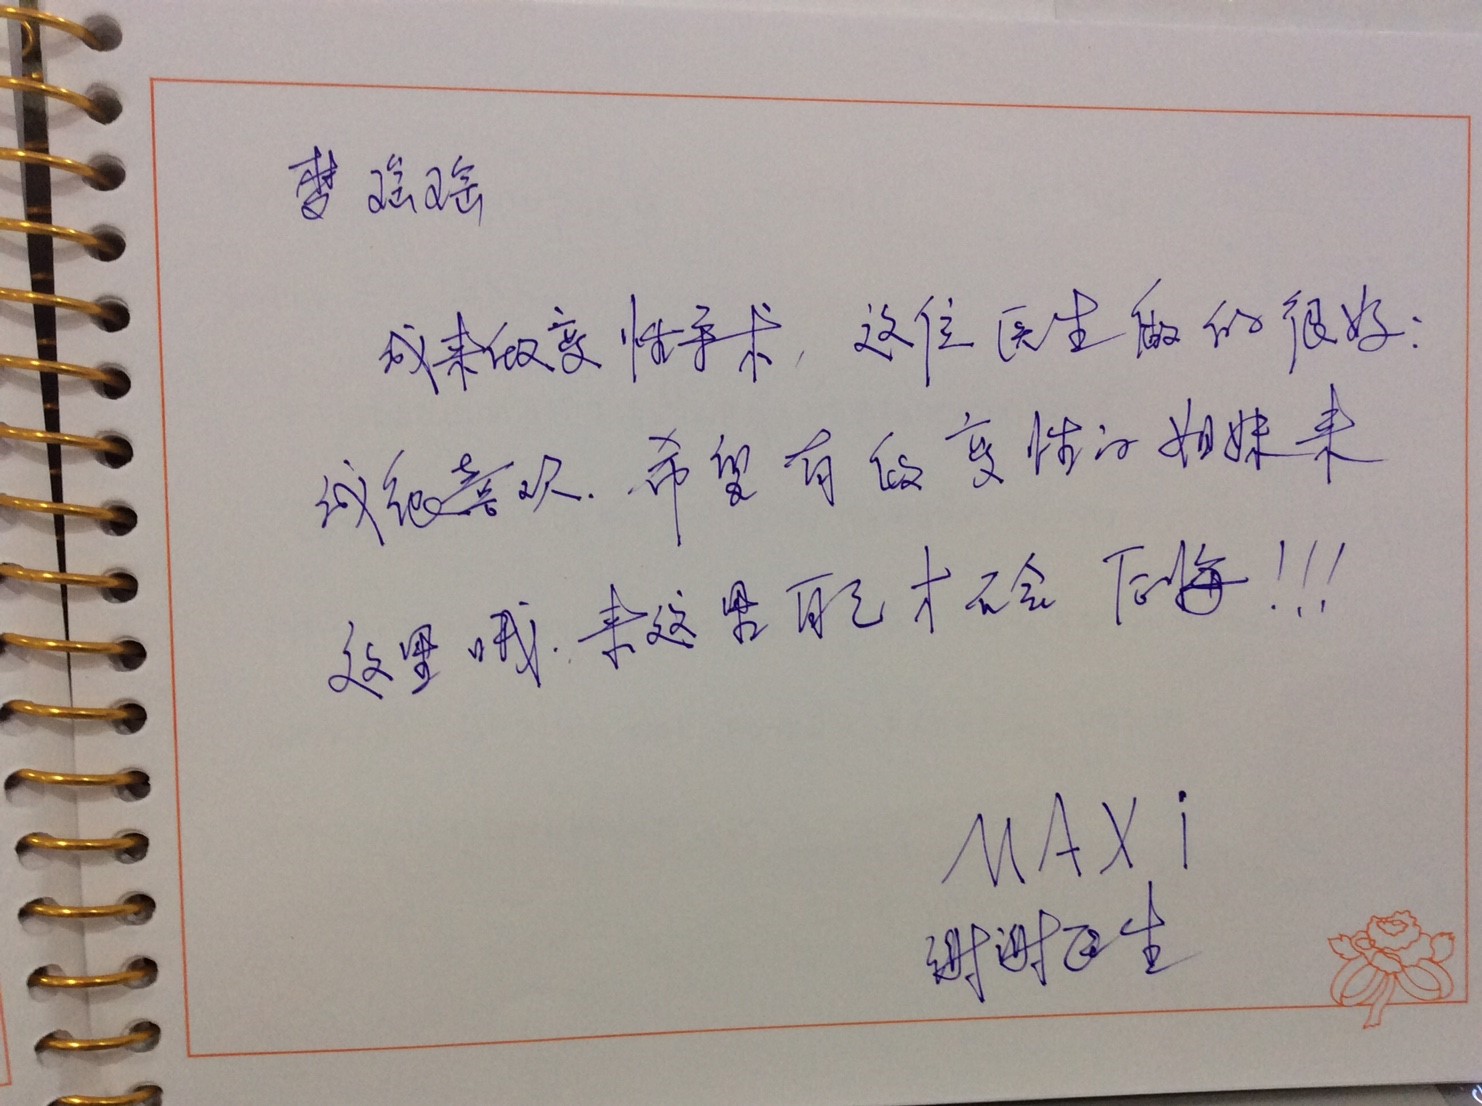 瑶瑶
我来做变性手术，这位医生做的很好：
我很喜欢．希望有做变性的姐妹来
这里哦．来这里自己才不会后悔!!!
MAXi
谢谢医生